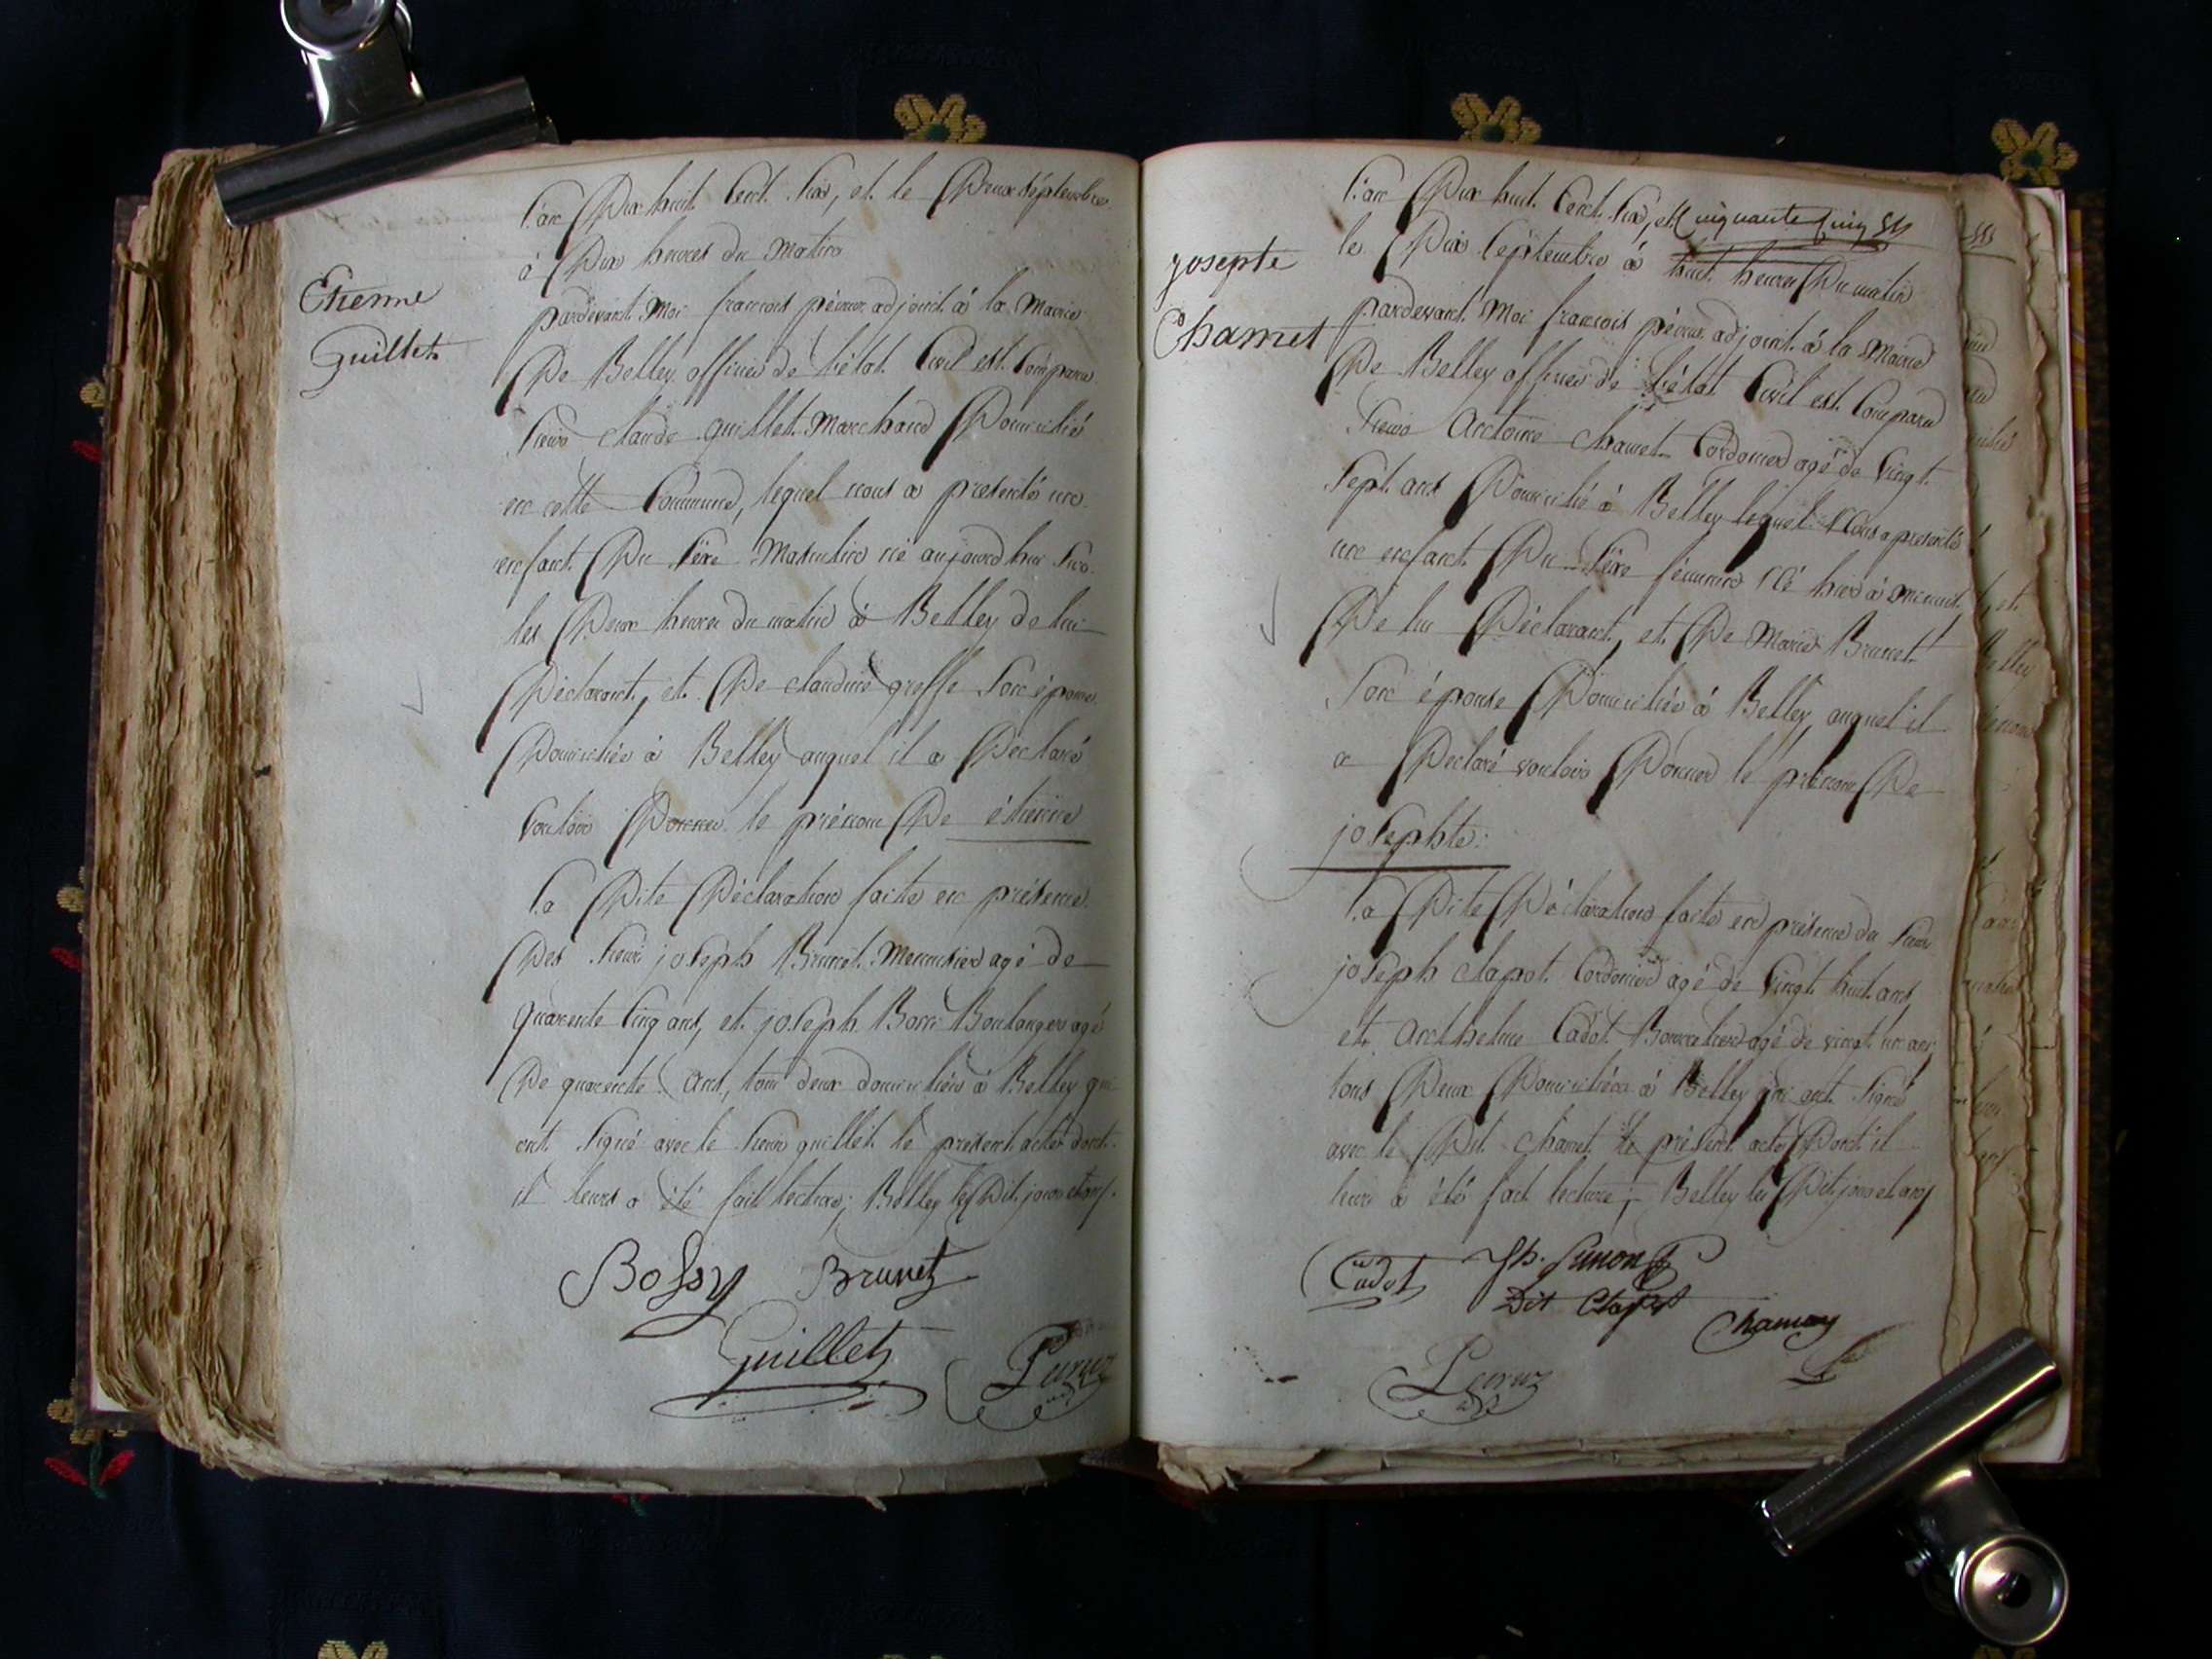 l'an Dix huit Cent Six, et le Deux septembre
à Dix heures du matin
Etienne
Guillet
pardevant Moi françois pévrux adjoint à la Mairie
De Belley officier de l'état Civil est Comparu
Sieur claude guillet Marchand Domicilié
en cette Commune, lequel nous a presenté un
enfant Du Sexe Masculin né aujourd'hui Sur
les Deux heures du matin à Belley de lui
Déclarant, et De claudine greffe Son épouse
Domiciliée à Belley auquel il a Déclaré
Vouloir Donner le prénom De étienne
La Dite Déclaration faite en présence
Des Sieur joseph Brunet Menuisier agé de
quarente Cinq ans, et joseph Bossi Boulanger agé
De quarente ans, tous deux domiciliés à Belley qui
ont Signé avec le Sieur guillet le present acte dont
il leurs a été fait lecture; Belley les Dit jour et an
Bossy Brunet
Guillet
l'an Dix huit Cent Six, et Cinquante Cinq
le Dix Septembre à huit heures Du matin
josepte
Chamet
pardevant Moi francois pévrux adjoint à la Mairie
De Belley officier de l'état Civil est Comparu
Sieur Antoine chamet Cordonier agé de Vingt
Sept ans Domicilié à Belley lequel Nous a presenté
un enfant Du Sexe féminin Né hier à minuit
De lui Déclarant, et De Marie Brunet
Son épouse Domiciliée à Belley, auquel il
a Declaré vouloir Donner le prénom De
josephte
La Dite Déclaration faite en présence du Sieur
joseph clapot Cordonier agé de Vingt huit ans
et Anthelme Cadot Bourrelier agé de vingt un ans
tous Deux Domiciliés à Belley qui ont Signé
avec le Dit chamet le présent acte Dont il
leur a été fait lecture; Belley les Dit jour et an
Cadot Jh. Simon
Dit Clapot
Chamay